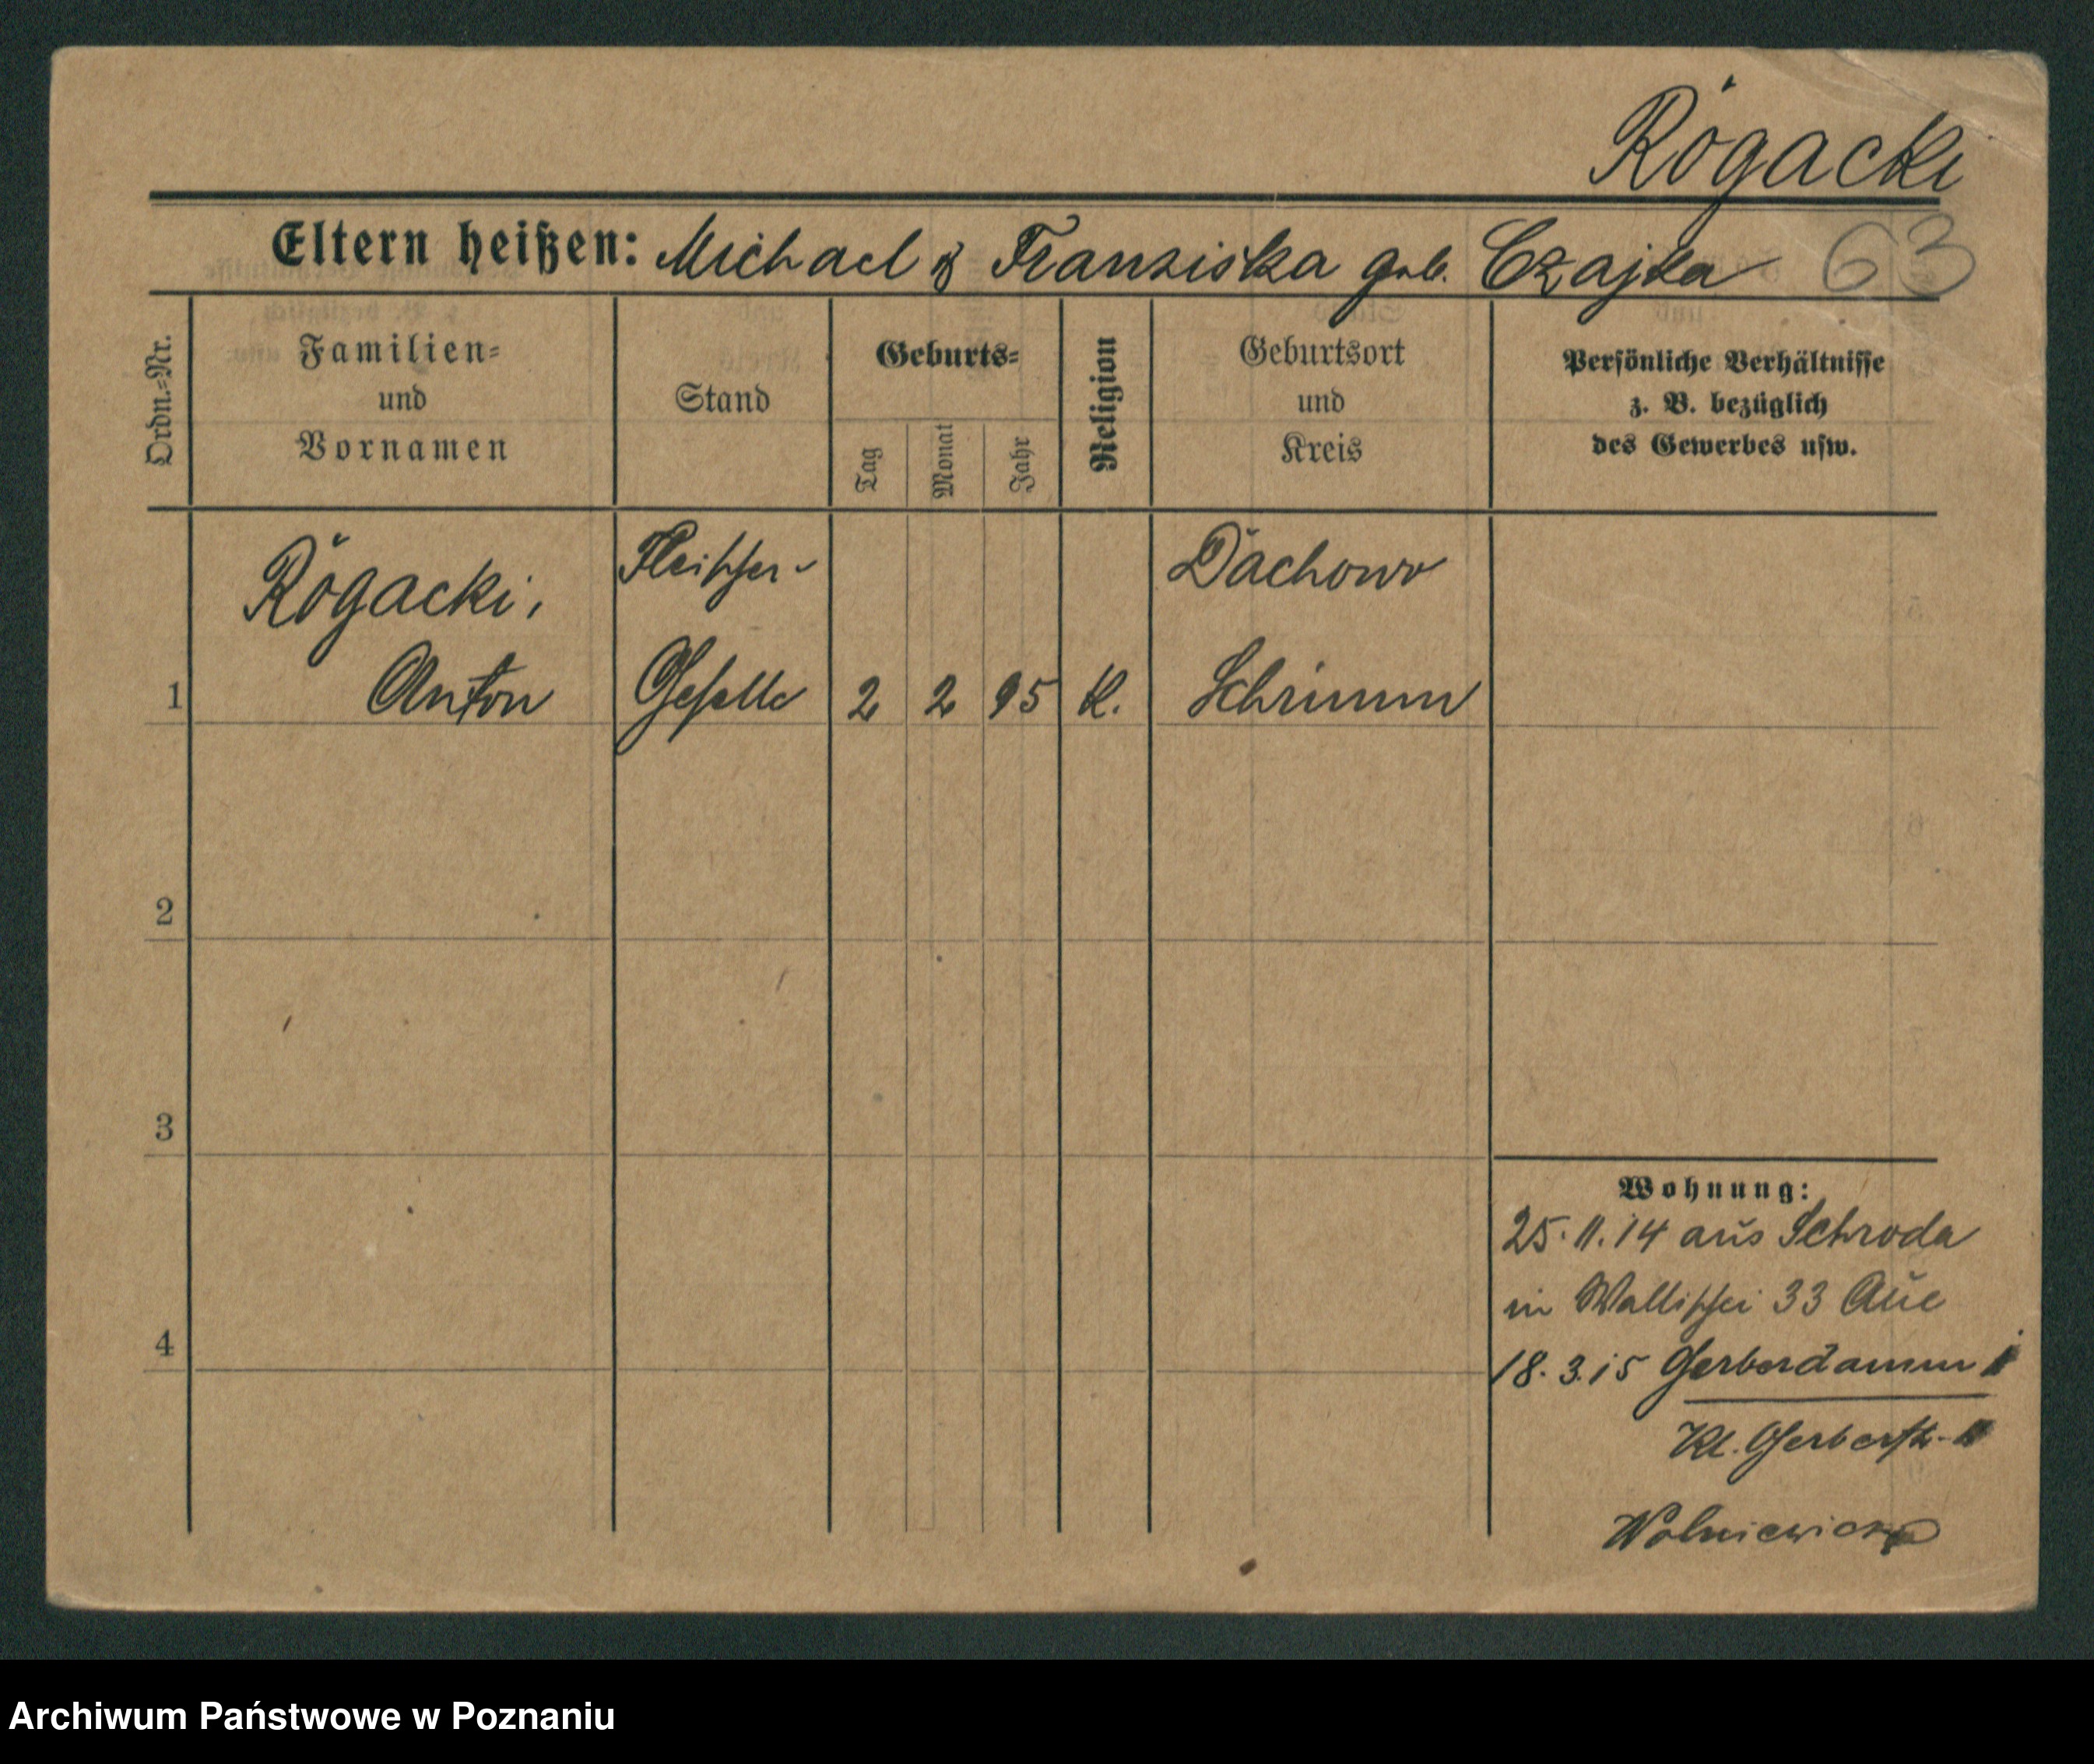 Rógacki
Eltern heißen: Michael & Franziska geb. Czajka 63
Ordn.=Nr.
Familien=
und
Vornamen
Stand
Geburts=
Tag
Monat
Jahr
Religion
Geburtsort
und
Kreis
Persönliche Verhältnisse
z. B. bezüglich
des Gewerbes usw.
Rógacki,
Anton
Fleischer-
Geselle
2
2
95
K.
Dachowo
Schrimm
1
2
3
4
Wohnung:
25.11.14 aus Schroda
in Wallischei 33 Aue
18.3.15 Gerberdamm
Kl. Gerberstr.
Archiwum Państwowe w Poznaniu